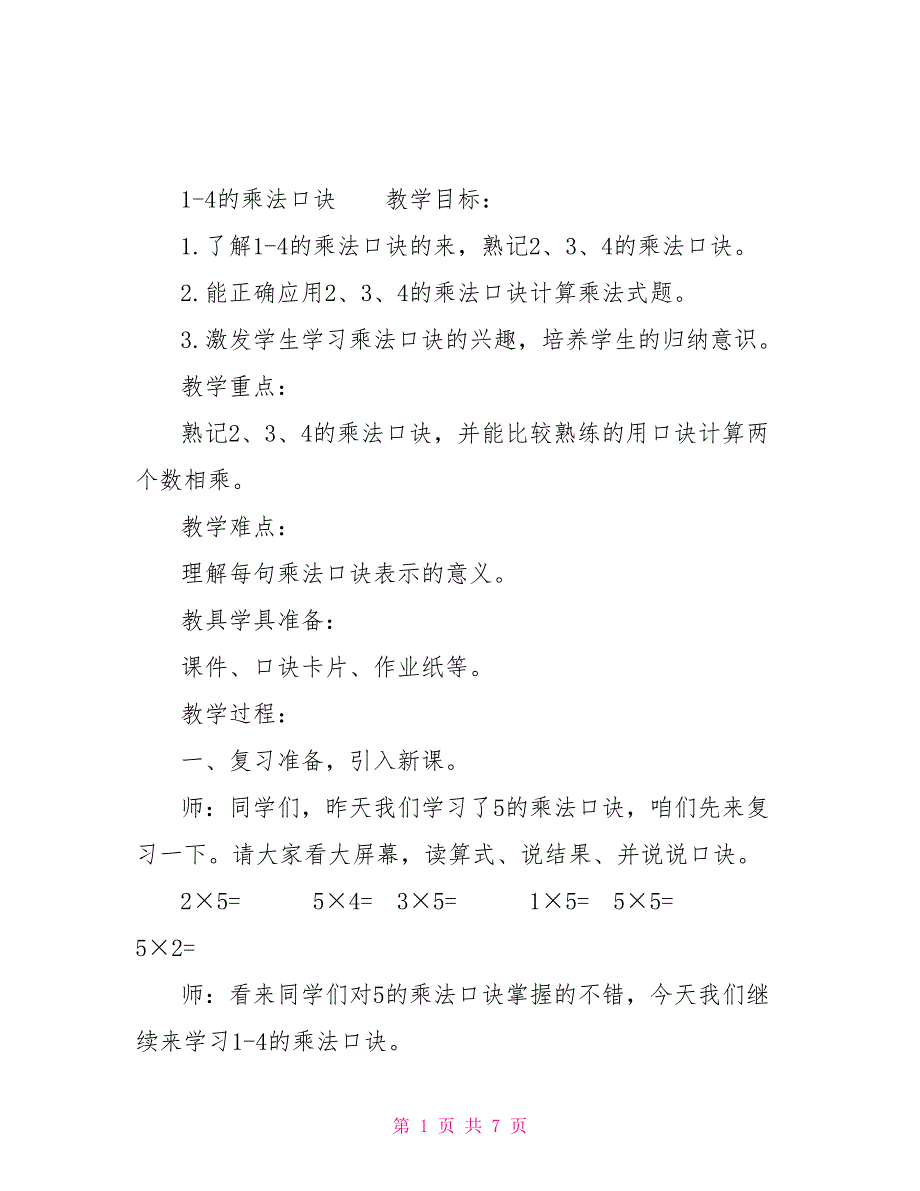 1-4的乘法口诀　　教学目标：
1.了解1-4的乘法口诀的来，熟记2、3、4的乘法口诀。
2.能正确应用2、3、4的乘法口诀计算乘法式题。
3.激发学生学习乘法口诀的兴趣，培养学生的归纳意识。
教学重点：
熟记2、3、4的乘法口诀，并能比较熟练的用口诀计算两
个数相乘。
教学难点：
理解每句乘法口诀表示的意义。
教具学具准备：
课件、口诀卡片、作业纸等。
教学过程：
一、复习准备，引入新课。
师：同学们，昨天我们学习了5的乘法口诀，咱们先来复
习一下。请大家看大屏幕，读算式、说结果、并说说口诀。
2×5=　　　5×4=　3×5=　　　1×5=　5×5=
5×2=
师：看来同学们对5的乘法口诀掌握的不错，今天我们继
续来学习1-4的乘法口诀。
第 1 页 共 7 页